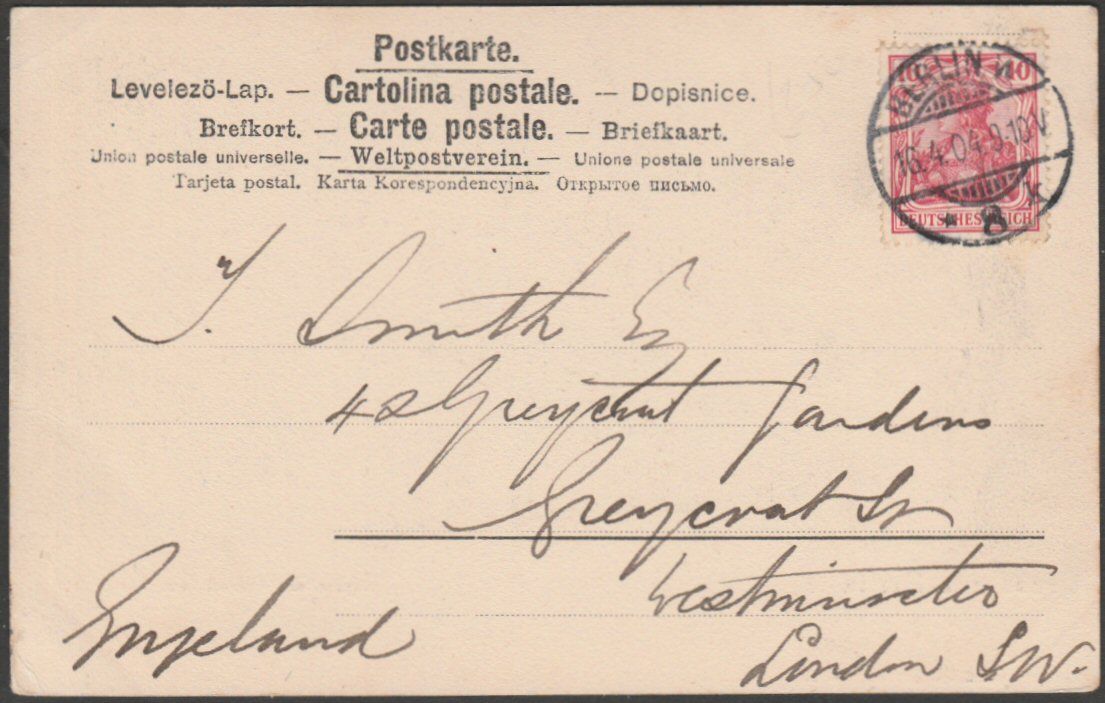 Postkarte.
Levelezö-Lap. — Cartolina postale. — Dopisnice.
Brefkort. — Carte postale. — Briefkaart.
Union postale universelle. — Weltpostverein. — Unione postale universale
Tarjeta postal. Karta Korespondencyjna. Открытое письмо.
10 10
DEUTSCHES REICH
BERLIN W
16.4.04.9-10V.
* 8 k
J. Smith Esq
42 Greycoat Gardens
Greycoat St
Westminster
London S.W.
England